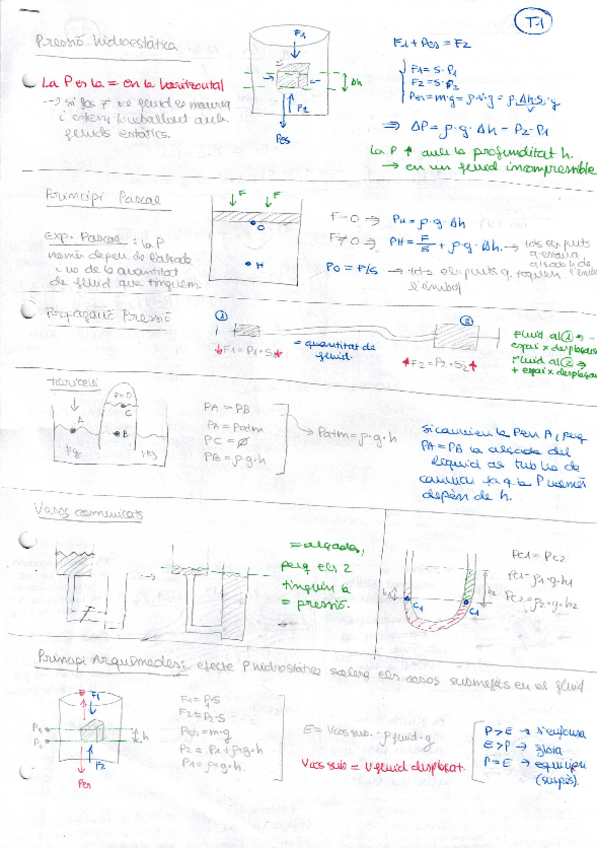 T.1
Pressió hidroestàtica
F1
S
Δh
F2
Pes
La P es la = en la horitzontal
i estem treballant amb
fluids estàtics.
F1 + Pes = F2
F1 = S · P1
F2 = S · P2
Pes = m·g = ρ·v·g = ρ·Δh·S·g
⇒ ΔP = ρ·g·Δh = P2 - P1
La P ↑ amb la profunditat h.
→ en un fluid incompressible
Principi Pascal
Exp. Pascal: la P
només depèn de l'alçada
i no de la quantitat
de fluid que tinguem.
F F
O
H
F=0 → PH = ρ·g·Δh
F≠0 → PH = F/S + ρ·g·Δh → tots els punts
PO = F/S → tots els punts q. toquen l'èmbol
Propagació Pressió
1
2
F1 = P1·S
= quantitat de
fluid.
F2 = P2·S2
Fluid al 1 ⇒ -
espai × desplaçar
Fluid al 2 ⇒
+ espai × desplaçar
Torricelli
P=0
A
C
B
Hg
Hg
PA = PB
PA = Patm
PC = Ø
PB = ρ·g·h
Patm = ρ·g·h
Si canviem la P en A, perq
PA = PB la alçada del
líquid al tub ha de
canviar ja q. la P només
depèn de h.
Vasos comunicats
= alçades,
perq els 2
tinguin la
= pressió.
h1
C1
h2
C1
Pc1 = Pc2
Pc1 = ρ1·g·h1
Pc2 = ρ2·g·h2
Principi Arquímedes: efecte P hidrostàtica sobre els cossos submergits en el fluid
E F1
P1
P2
h
F2
Pes
F1 = P1·S
F2 = P2·S
Pes = m·g
P2 = P1 + ρ·g·h
P1 = ρ·g·h.
E = Vcos sub. · ρfluid · g
Vcos sub = V fluid desplaçat.
P>E → s'enfonsa
E>P → flota
P=E → equilibri
(suspès).